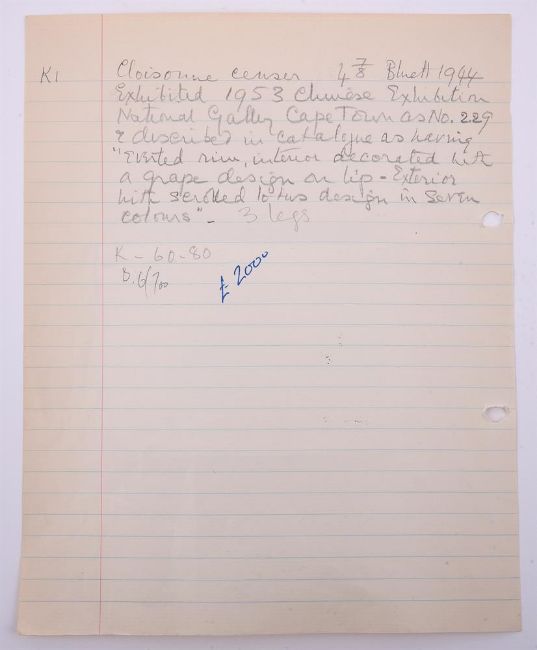 K1 Cloisonne censer 4 7/8 Bluett 1944
Exhibited 1953 Chinese Exhibition
National Gallery Cape Town as No. 229
& described in catalogue as having
"Everted rim, interior decorated with
a grape design on lip - Exterior
with scrolled lotus design in seven
colours" - 3 legs
K - 60-80
£2000